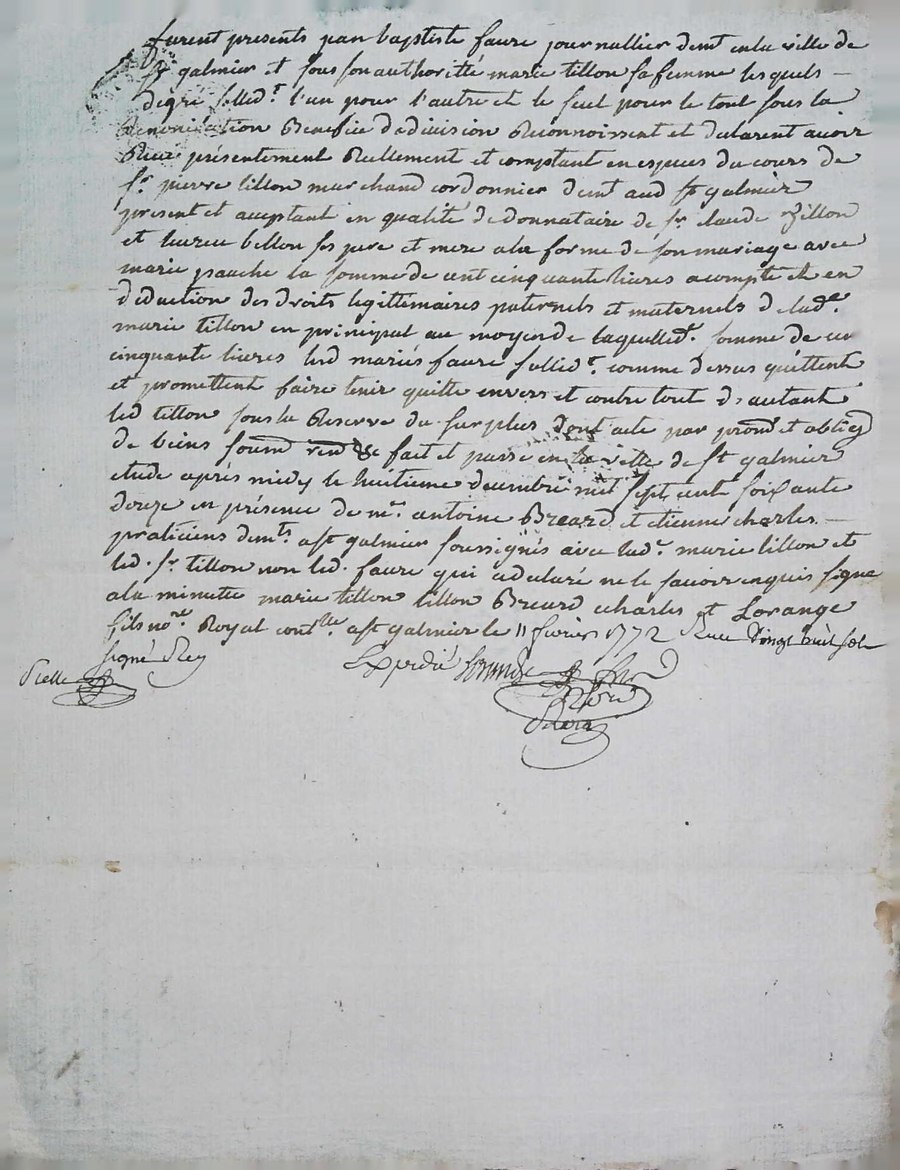 furent presents jean baptiste faure journallier demt en la ville de
st galmier et sous son authorité marie tillon sa femme lesquels
degré sollidt l'un pour l'autre et le seul pour le tout sous la
Renonciation Benefice de division Reconnoissent et declarent avoir
Reçu présentement Réellement et comptant en especes du cours de
sr pierre tillon marchand cordonnier demt aud st galmier
present et acceptant en qualité de donnataire de sr claude tillon
et bellon ses pere et mere a la forme de son mariage avec
marie la somme de cent cinquante livres a compte et en
déduction des droits legittimaires paternels et maternels de lade
marie tillon en principal au moyen de laquelle somme de cent
cinquante livres led mariés faure sollidt comme dessus quittent
et promettent faire tenir quitte envers et contre tout d'autant
led tillon sous la Reserve du surplus dont acte par prom et oblig
de biens soum ren &c fait et passé en la ville de st galmier
etude après midy le huitieme decembre mil sept cent soixante
douze en présence de me antoine Breard et etienne charles
praticiens demts a st galmier soussignés avec lade marie tillon et
led. sr tillon non led. faure qui a declaré ne le savoir enquis signé
a la minutte marie tillon tillon Breard charles et Lorange
fils nore Royal contlle a st galmier le 11 fevrier 1772 Reçu vingt huit sols
signé Rey
Expedié